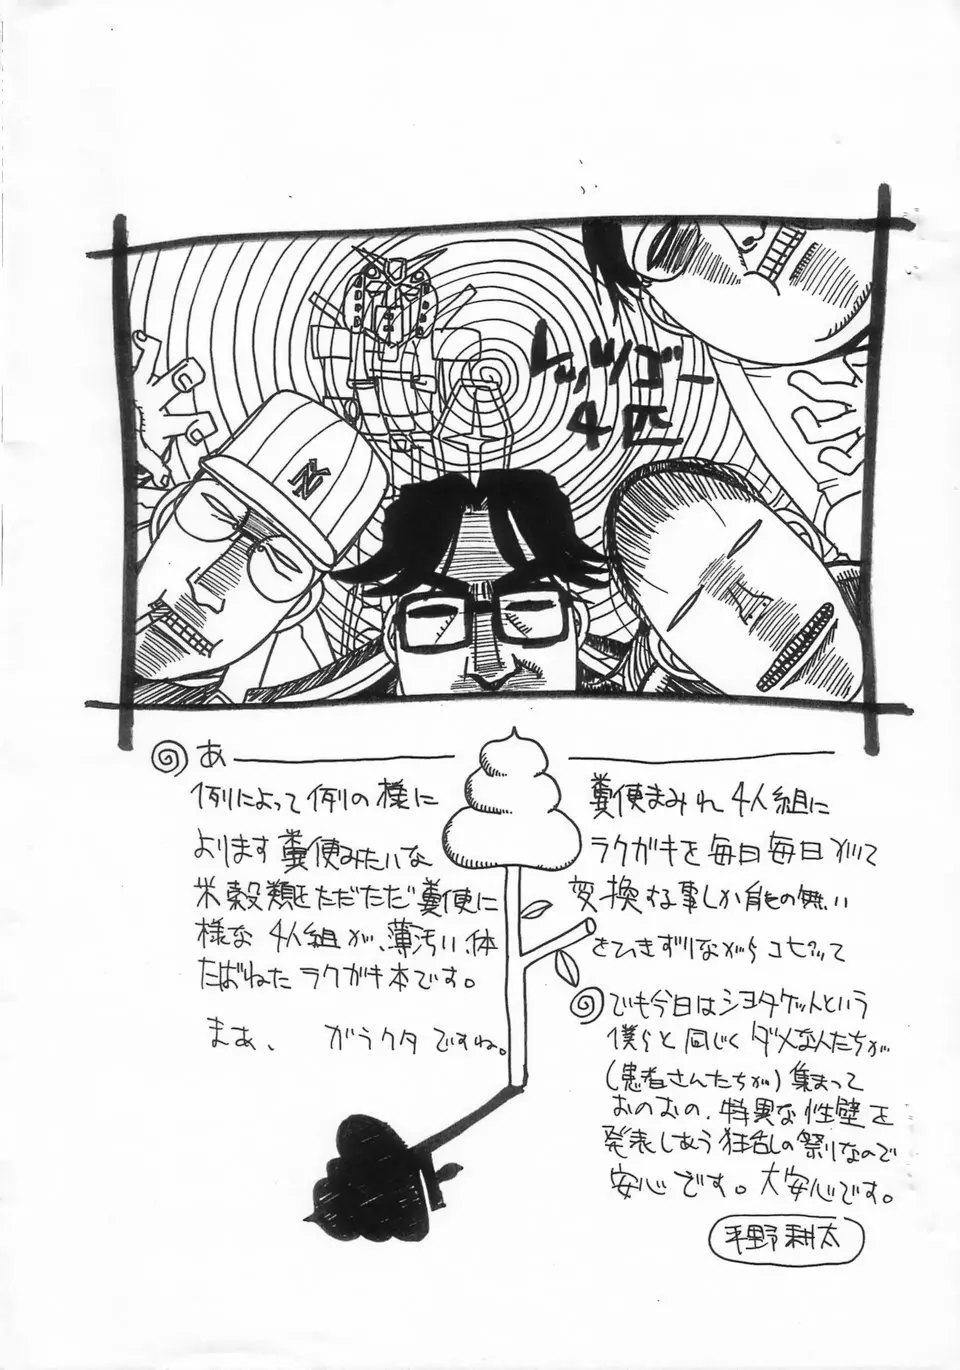 レッツゴー
4匹
NY
あ
例によって例の様に 糞便まみれ4人組に
よります糞便みたいな ラクガキを毎日毎日かいて
米穀類をただただ糞便に 変換する事しか能の無い
様な4人組が、薄汚い体 をひきずりながらコピッて
たばねたラクガキ本です。
まあ、 ガラクタですね。
でも今日はショタケットという
僕らと同じくダメな人たちが
(患者さんたちが)集まって
おのおの、特異な性壁を
発表しあう狂乱の祭りなので
安心です。大安心です。
平野耕太